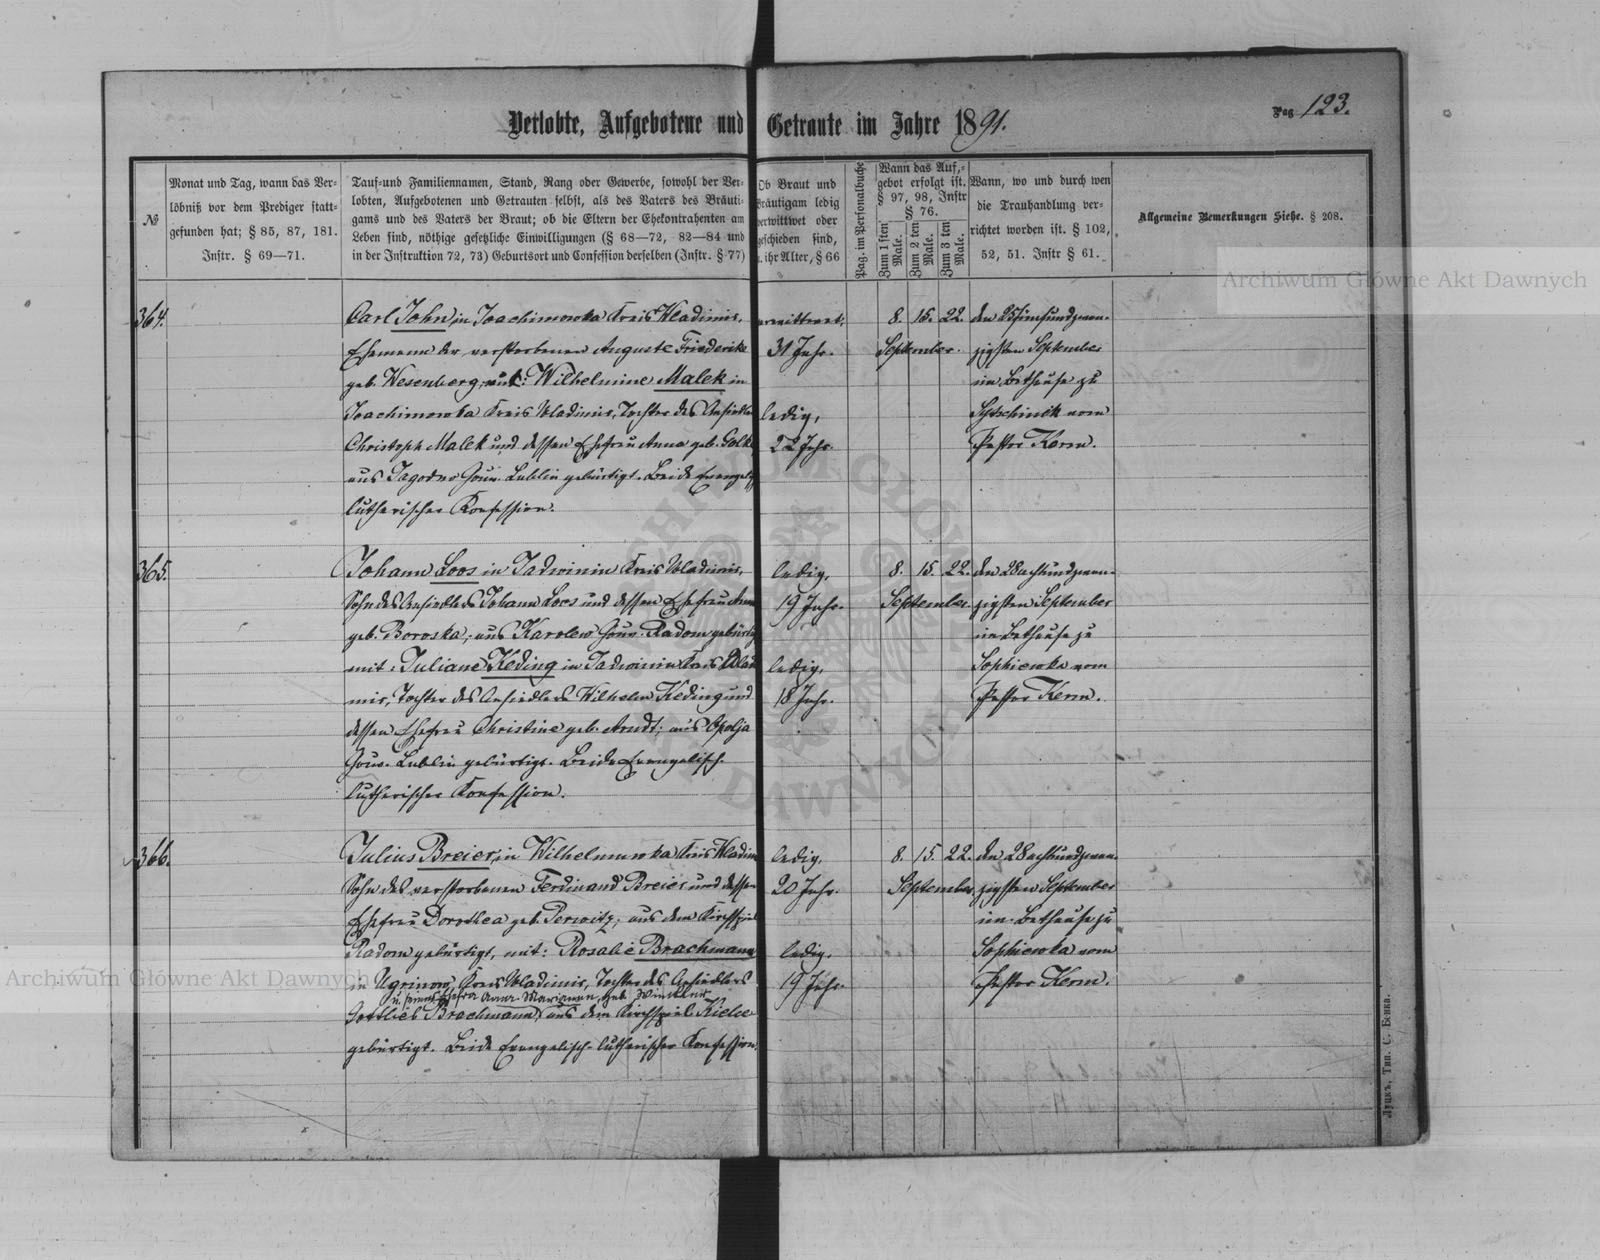 Verlobte, Aufgebotene und Getraute im Jahre 1891.
Pag 123.
№
Monat und Tag, wann das Ver-
löbniß vor dem Prediger statt-
gefunden hat; § 85, 87, 181.
Instr. § 69—71.
Tauf-und Familiennamen, Stand, Rang oder Gewerbe, sowohl der Ver-
lobten, Aufgebotenen und Getrauten selbst, als des Vaters des Bräuti-
gams und des Vaters der Braut; ob die Eltern der Ehekontrahenten am
Leben sind, nöthige gesetzliche Einwilligungen (§ 68—72, 82—84 und
in der Instruktion 72, 73) Geburtsort und Confession derselben (Instr. § 77)
Ob Braut und
Bräutigam ledig
verwittwet oder
geschieden sind,
u. ihr Alter, § 66
Pag. im Personalbuche
Wann das Auf-
gebot erfolgt ist.
§ 97, 98, Instr
§ 76.
Zum 1 sten Male.
Zum 2 ten Male.
Zum 3 ten Male.
Wann, wo und durch wen
die Trauhandlung ver-
richtet worden ist. § 102,
52, 51. Instr § 61.
Allgemeine Bemerkungen Siehe. § 208.
364.
Carl John, in Joachimowka Kreis Wladimir,
Ehemann der verstorbenen Auguste Friederike
geb. Wesenberg, mit: Wilhelmine Malek in
Joachimowka Kreis Wladimir, Tochter des Ansiedlers
Christoph Malek und dessen Ehefrau Anna geb. Golke
aus Jagodno Gouv. Lublin gebürtigt. Beide Evangelisch
lutherischer Konfession.
verwittwet,
31 Jahr.
ledig,
22 Jahr.
8. 15. 22.
September.
den 25 fünfundzwan-
zigsten September
im Bethause zu
vom
Pastor Kerm.
365.
Johann Loos in Jadwinin Kreis Wladimir,
Sohn des Ansiedlers Johann Loos und dessen Ehefrau Anna
geb. Boroska; aus Karolew Gouv. Radom gebürtig
mit: Juliane Keding in Jadwinin Kreis Wladi
mir, Tochter des Ansiedlers Wilhelm Keding und
dessen Ehefrau Christine geb. Arndt; aus Opolja
Gouv. Lublin gebürtigt. Beide Evangelisch
lutherischer Konfession.
ledig,
19 Jahr.
ledig,
18 Jahr.
8. 15. 22.
September.
den 28 achtundzwan-
zigsten September
im Bethause zu
Sophiewka vom
Pastor Kerm.
366.
Julius Breier, in Wilhelmowka Kreis Wladim
Sohn des verstorbenen Ferdinand Breier und dessen
Ehefrau Dorothea geb. Perwitz; aus dem Kirchspiel
Radom gebürtigt, mit: Rosalie Brachmann
in Ugrinow, Kreis Wladimir, Tochter des Ansiedlers
u. seiner Ehefrau Anna Marianna, geb. Winkler
Gottlieb Brachmann, aus dem Kirchspiel Kielce
gebürtigt. Beide Evangelisch-lutherischer Konfession.
ledig,
20 Jahr.
ledig,
19 Jahr.
8. 15. 22.
September
den 28 achtundzwan-
zigsten September
im Bethause zu
Sophiewka vom
Pastor Kerm.
Луцкъ, Тип. С. Бевка.
Archiwum Główne Akt Dawnych
Archiwum Główne Akt Dawnych